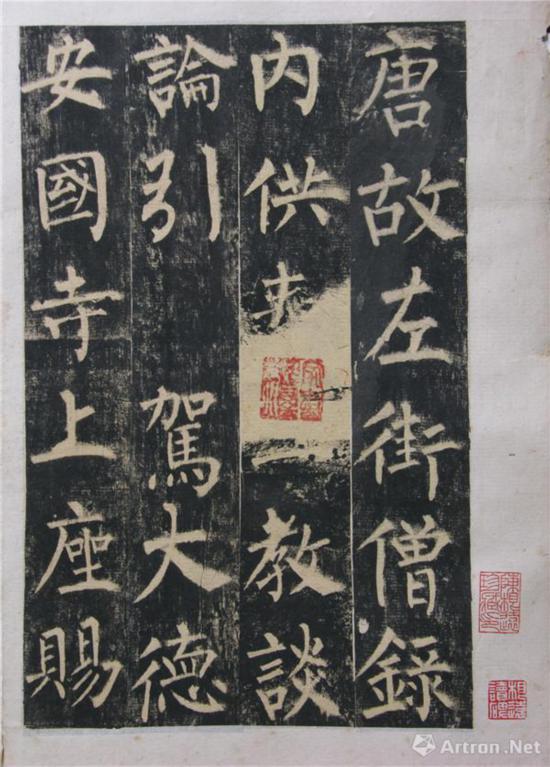 唐故左街僧錄
內供奉 教談
論引 駕大德
安國寺上座賜
Artron.Net